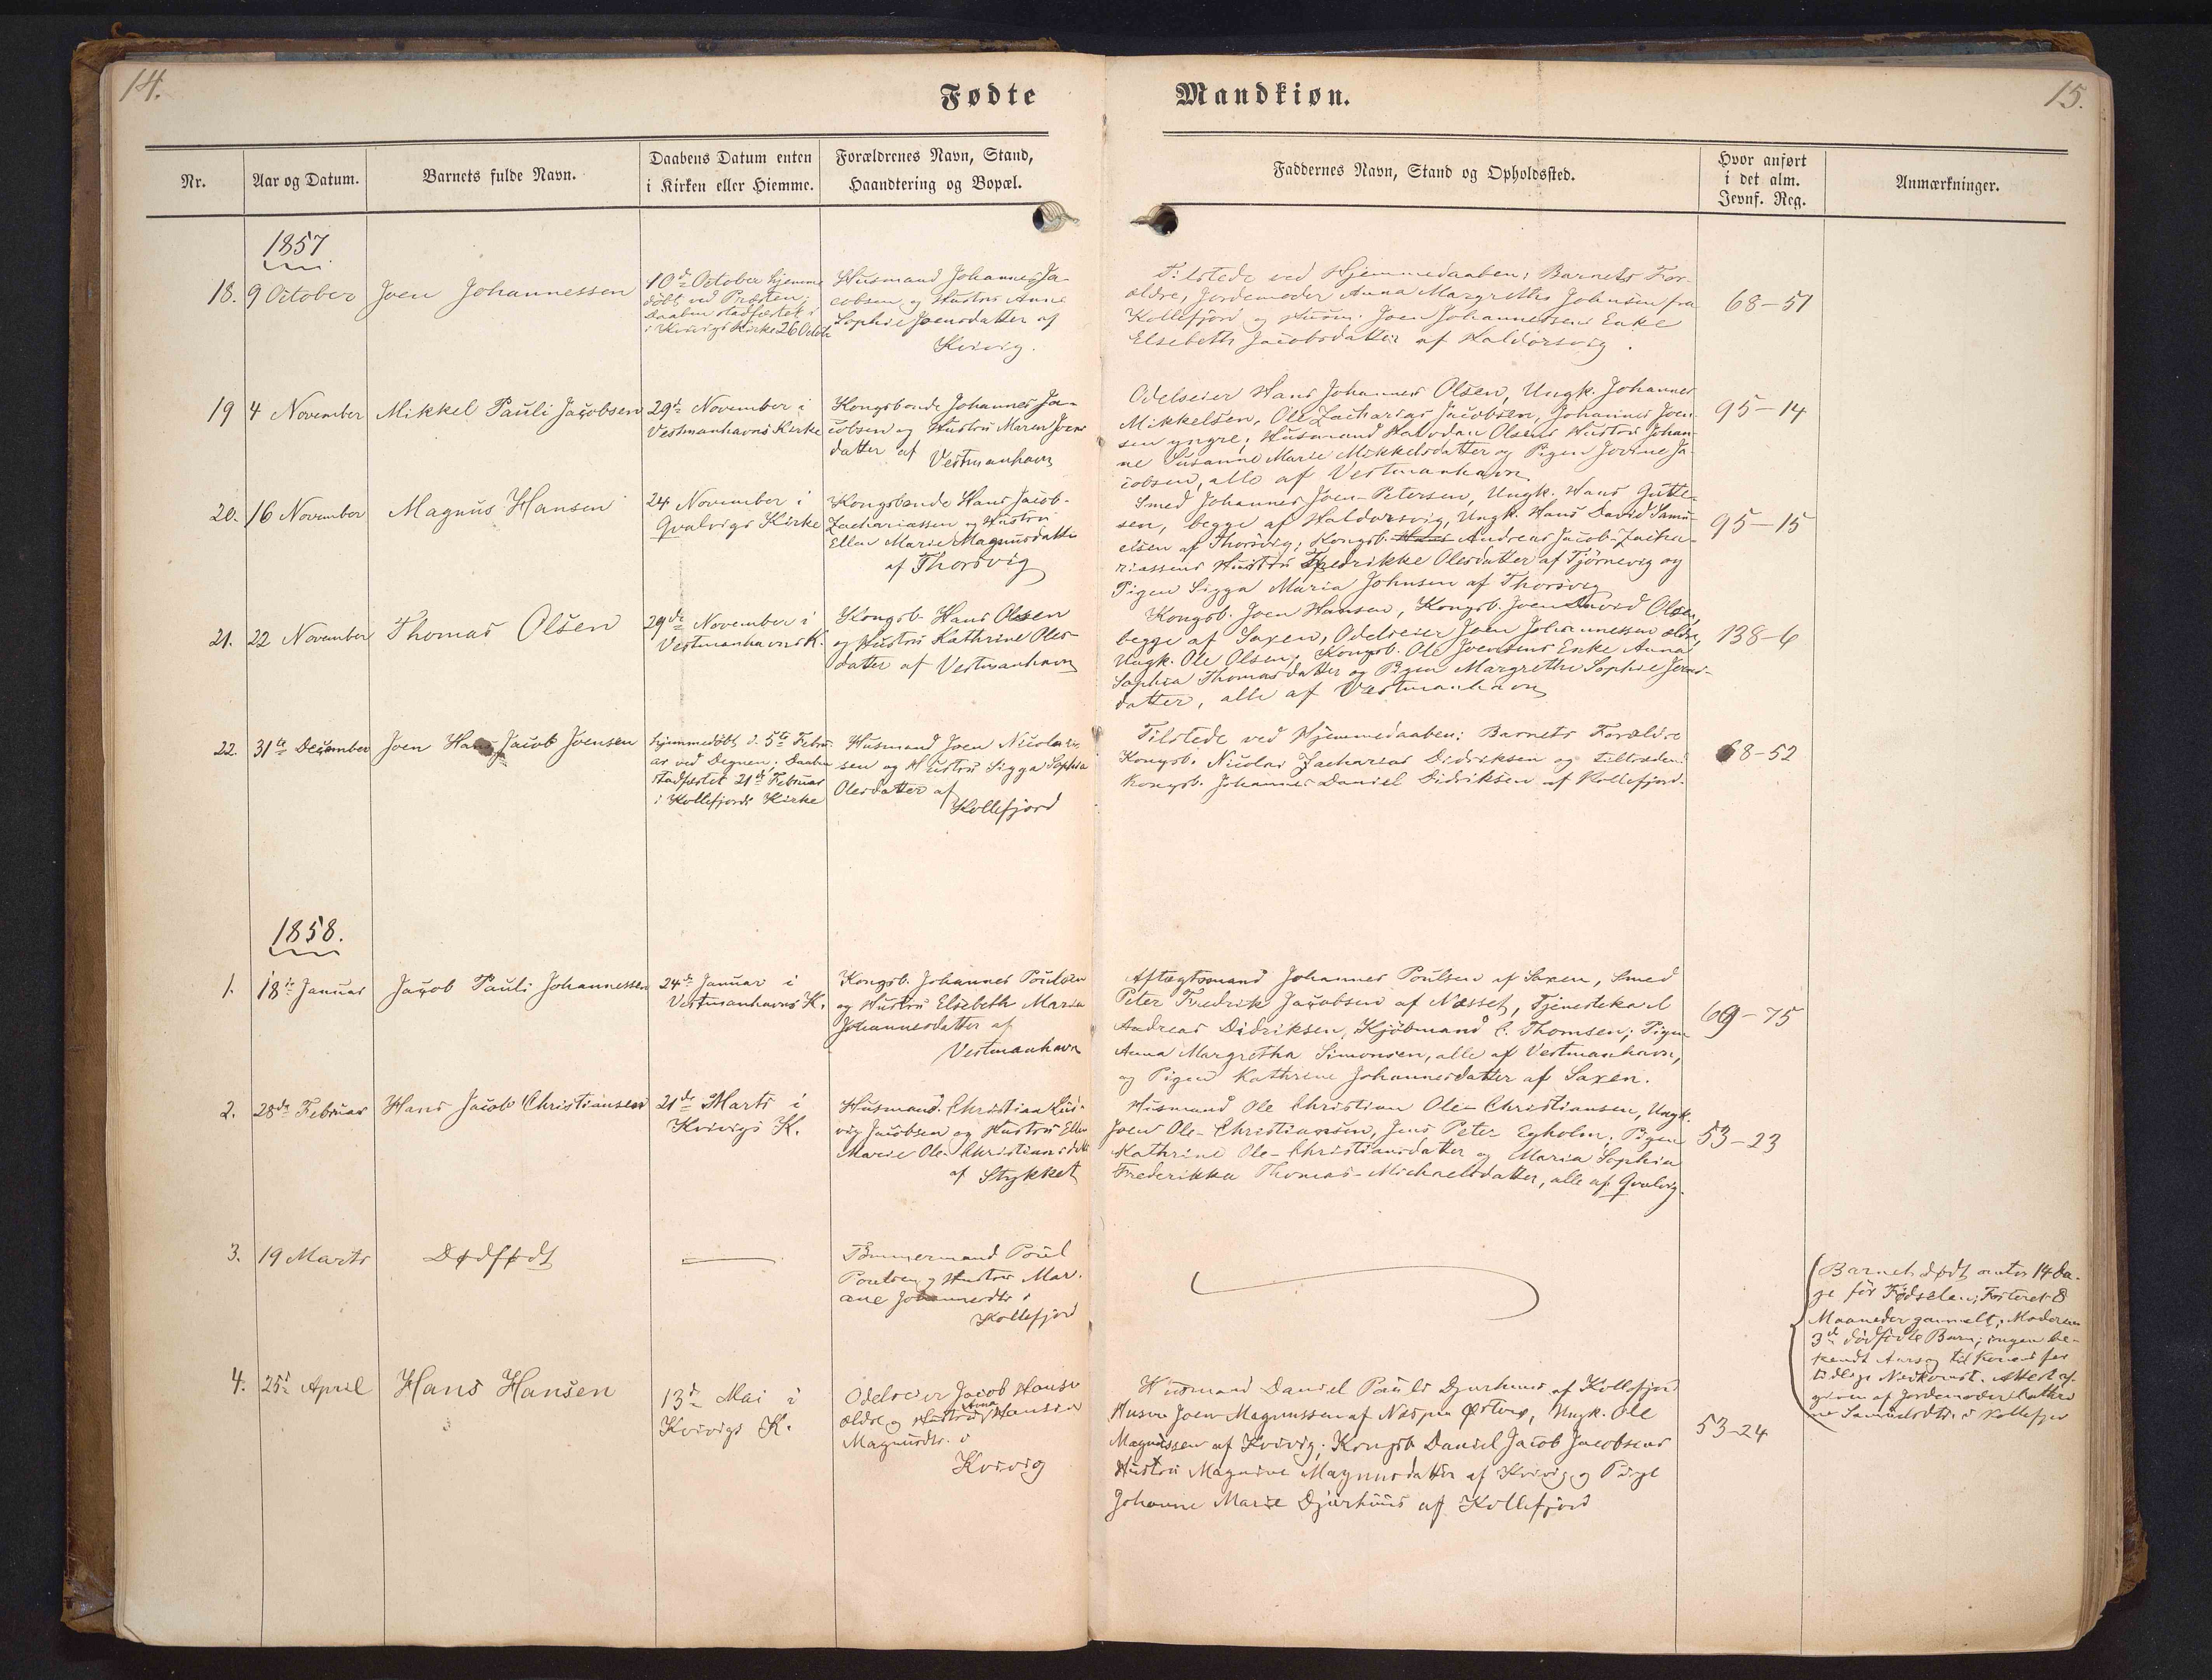 14.
Fødte
Nr.
Aar og Datum.
Barnets fulde Navn.
Daabens Datum enten
i Kirken eller Hiemme.
Forældrenes Navn, Stand,
Haandtering og Bopæl.
1857
18.
9 October
Joen Johannessen
10de October hjemme
døbt ved Præsten;
Daaben stadfæstet i
i Kvivigs Kirke 26 Octob
Husmand Johannes Ja-
cobsen og Hustru Anne
Sophie Joensdatter af
Kvivig.
19
4 November
Mikkel Pauli Jacobsen
29de November i
Vestmanhavns Kirke
Kongsbonde Johannes Ja-
cobsen og Hustru Maren Joens
datter af
Vestmanhavn
20.
16 November
Magnus Hansen
24 November i
Qvalvigs Kirke
Kongsbonde Hans Jacob-
Zachariassen og Hustru
Ellen Marie Magnusdatter
af Thorsvig
21.
22 November
Thomas Olsen
29de November i
Vestmanhavns K.
Kongsb. Hans Olsen
og Hustru Kathrine Oles-
datter af Vestmanhavn
22.
31te December
Joen Hans Jacob Joensen
hjemmedøbt d. 5te Febru-
ar ved Degnen; Daaben
stadfæstet 21de Februar
i Kollefjords Kirke
Husmand Joen Nicolai-
sen og Hustru Sigga Sophia
Olesdatter af
Kollefjord
1858.
1.
18de Januar
Jacob Pauli Johannessen
24de Januar i
Vestmanhavns K.
Kongsb. Johannes Poulsen
og Hustru Elsebeth Maria
Johannesdatter af
Vestmanhavn
2.
28de Februar
Hans Jacob Christiansen
21de Marts i
Kvivigs K.
Husmand Christian Lud-
vig Jacobsen og Hustru Ellen
Marie Ole-Christiansdatt
af Stykket
3.
19 Marts
Dødfødt
Tømmermand Poul
Poulsen og Hustru Mar-
ane Johannesdtr i
Kollefjord
4.
25de April
Hans Hansen
13de Mai i
Kvivigs K.
Odelseier Jacob Hansen
ældre og Hustru Anna Hansine
Magnusdtr. i
Kvivig
Mandkiøn.
15.
Faddernes Navn, Stand og Opholdssted.
Hvor anført
i det alm.
Jevnf. Reg.
Anmærkninger.
Tilstede ved Hjemmedaaben: Barnets For-
ældre, Jordemoder Anna Margrethe Johnsen fra
Kollefjord og Husm. Joen Johannessens Enke
Elsebeth Jacobsdatter af Haldorsvig.
68-51
Odelseier Hans Johannes Olsen, Ungk. Johannes
Mikkelsen, Ole Zacharias Jacobsen, Johannes Joen-
sen yngre; Husmand Halvdan Olsens Hustru Johan-
ne Susanne Marie Mikkelsdatter og Pigen Jovine Ja-
cobsen, alle af Vestmanhavn
95-14
Smed Johannes Joen-Petersen, Ungk. Hans Gutte-
sen, begge af Haldorsvig, Ungk. Hans David Samu-
elsen af Thorsvig; Kongsb. Hans Andreas Jacob-Zacha-
riassens Hustru Fredrikke Olesdatter af Tjørnevig og
Pigen Sigga Maria Johnsen af Thorsvig
95-15
Kongsb. Joen Hansen, Kongsb. Joen David Olsen,
begge af Saxen, Odelseier Joen Johannessen ældre,
Ungk. Ole Olsen, Kongsb. Ole Joensens Enke Anna
Sophia Thomasdatter og Pigen Margrethe Sophie Joens-
datter, alle af Vestmanhavn
138-6
Tilstede ved Hjemmedaaben: Barnets Forældre
Kongsb. Nicolai Zacharias Didriksen og tiltræden
Kongsb. Johannes Daniel Didriksen af Kollefjord.
68-52
Aftægtsmand Johannes Poulsen af Saxen, Smed
Peter Fredrik Jacobsen af Næsset, Tjenestekarl
Andreas Didriksen, Kjøbmand C. Thomsen; Pigen
Anna Margretha Simonsen, alle af Vestmanhavn,
og Pigen Kathrine Johannesdatter af Saxen.
69-75
Husmand Ole Christian Ole-Christiansen, Ungk.
Joen Ole-Christiansen, Jens Peter Egholm; Pigen
Kathrine Ole-Christiansdatter og Maria Sophia
Frederikka Thomas-Michaelsdatter, alle af Qvalvig.
53-23
Barnet dødt omtr 14 Da-
ge før Fødselen; Fosteret 8
Maaneder gammelt; Moderens
3de dødfødte Barn; ingen be-
kendt Aarsag til Konens for
tidlige Nedkomst. Attest af-
given af Jordemoder Cathri
ne Samuelsdtr. i Kollefjor
Husmand Daniel Pauli Djurhuus af Kollefjord
Husm Joen Magnussen af Næs paa Østerø, Ungk. Ole
Magnussen af Kvivig; Kongsb Daniel Jacob Jacobsens
Hustru Magnine Magnusdatter af Kvivig og Pige
Johanne Marie Djurhuus af Kollefjord
53-24